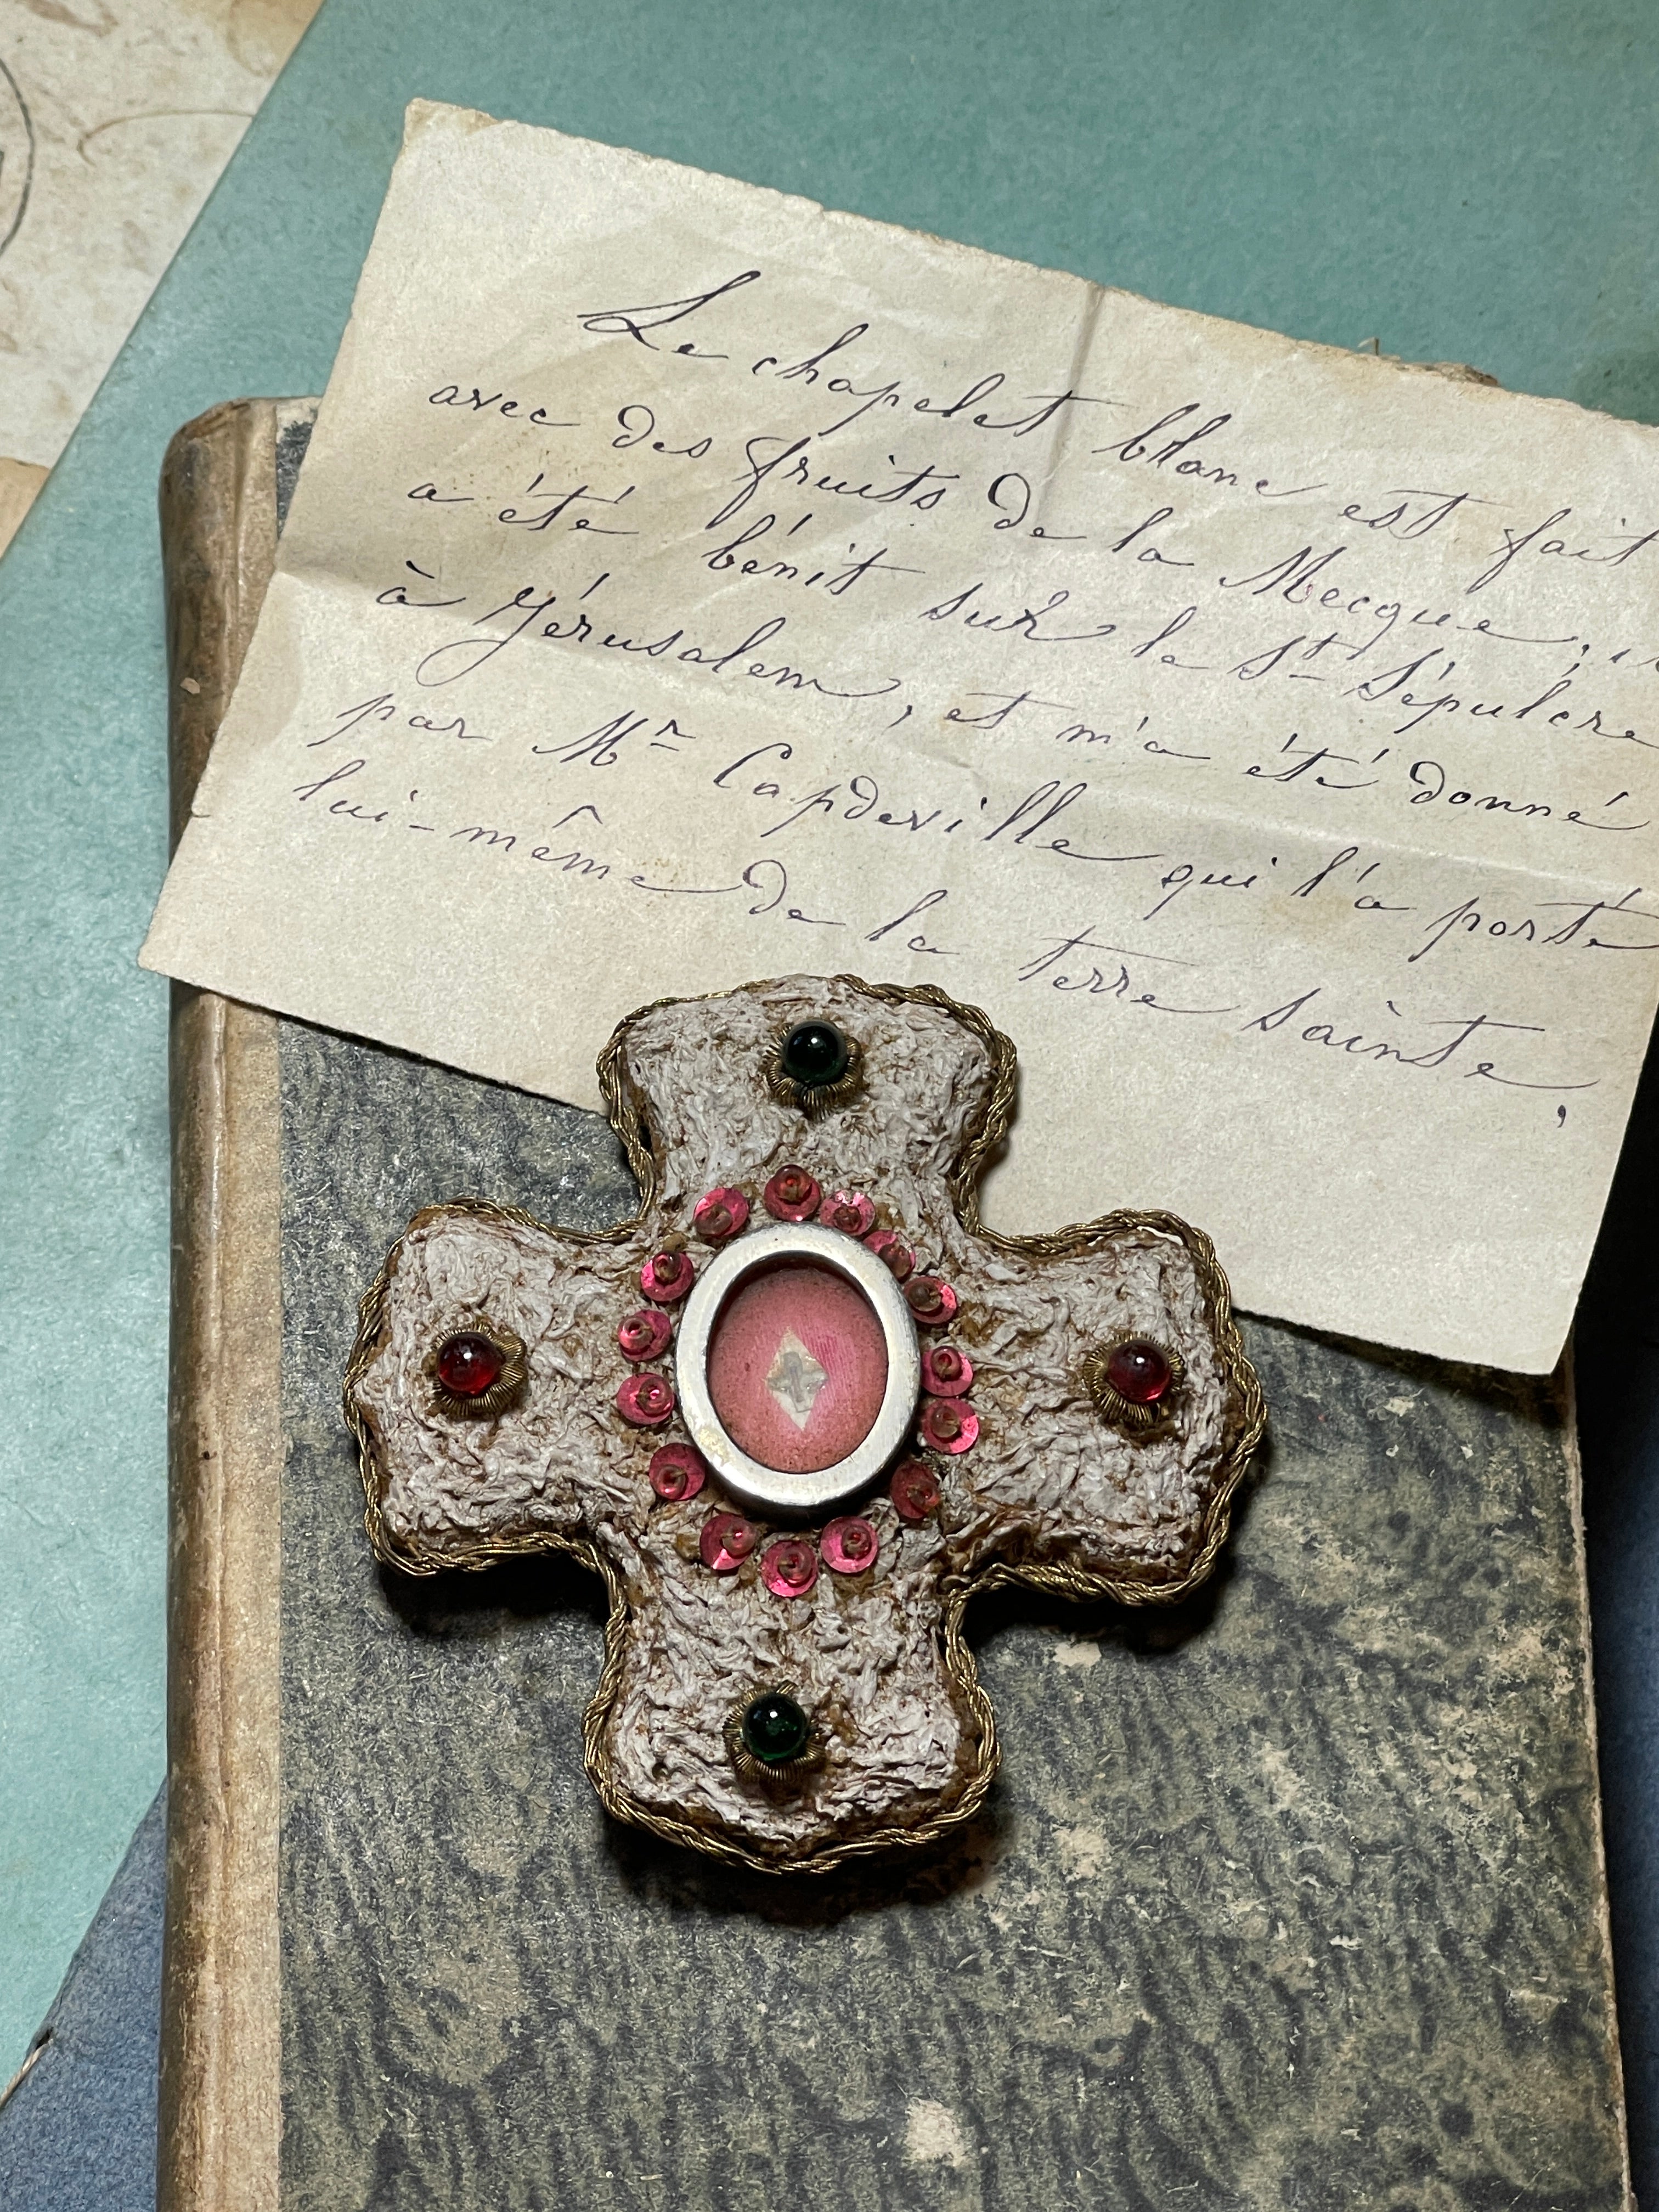 Le chapelet blanc est fait
avec des fruits de la Mecque, il
a été bénit sur le St Sépulcre
à Jérusalem, et m'a été donné
par Mr Capdeville qui l'a porté
lui-même de la terre sainte,